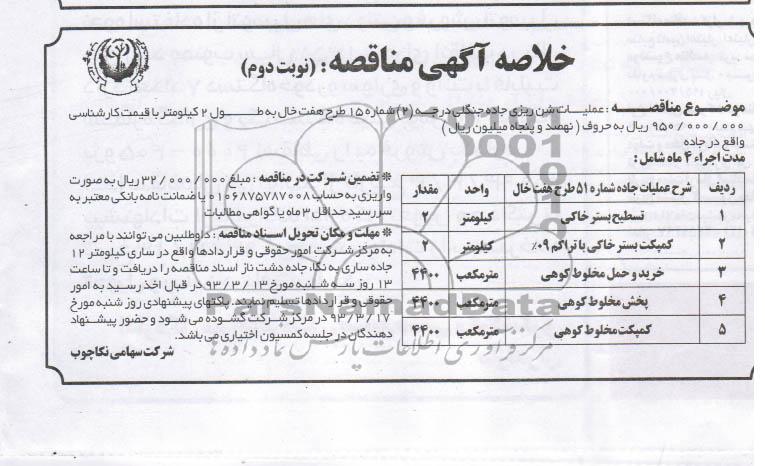 خلاصه آگهی مناقصه : (نوبت دوم)
موضوع مناقصه : عملیات شن ریزی جاده جنگلی درجه (۲) شماره ۱۵ طرح هفت خال به طول ۲ کیلومتر با قیمت کارشناسی
۹۵۰/۰۰۰/۰۰۰ ریال به حروف ( نهصد و پنجاه میلیون ریال )
واقع در جاده
مدت اجراء ۴ ماه شامل :
ردیف شرح عملیات جاده شماره ۵۱ طرح هفت خال واحد مقدار
۱ تسطیح بستر خاکی کیلومتر ۲
۲ کمپکت بستر خاکی با تراکم ۰۹٪ کیلومتر ۲
۳ خرید و حمل مخلوط کوهی مترمکعب ۴۴۰۰
۴ پخش مخلوط کوهی مترمکعب ۴۴۰۰
۵ کمپکت مخلوط کوهی مترمکعب ۴۴۰۰
* تضمین شرکت در مناقصه : مبلغ ۳۲/۰۰۰/۰۰۰ ریال به صورت
واریزی به حساب ۰۱۰۶۸۷۵۷۸۷۰۰۸ یا ضمانت نامه بانکی معتبر به
سررسید حداقل ۳ ماه یا گواهی مطالبات
* مهلت و مکان تحویل اسناد مناقصه : داوطلبین می توانند با مراجعه
به مرکز شرکت امور حقوقی و قراردادها واقع در ساری کیلومتر ۱۲
جاده ساری به نکا، جاده دشت ناز اسناد مناقصه را دریافت و تا ساعت
۱۳ روز سه شنبه مورخ ۹۳/۳/۱۳ در قبال اخذ رسید به امور
حقوقی و قراردادها تسلیم نمایند. پاکتهای پیشنهادی روز شنبه مورخ
۹۳/۳/۱۷ در مرکز شرکت گشوده می شود و حضور پیشنهاد
دهندگان در جلسه کمسیون اختیاری می باشد.
شرکت سهامی نکاچوب
ParsNamadData
مرکز فرآوری اطلاعات پارس نماد داده ها